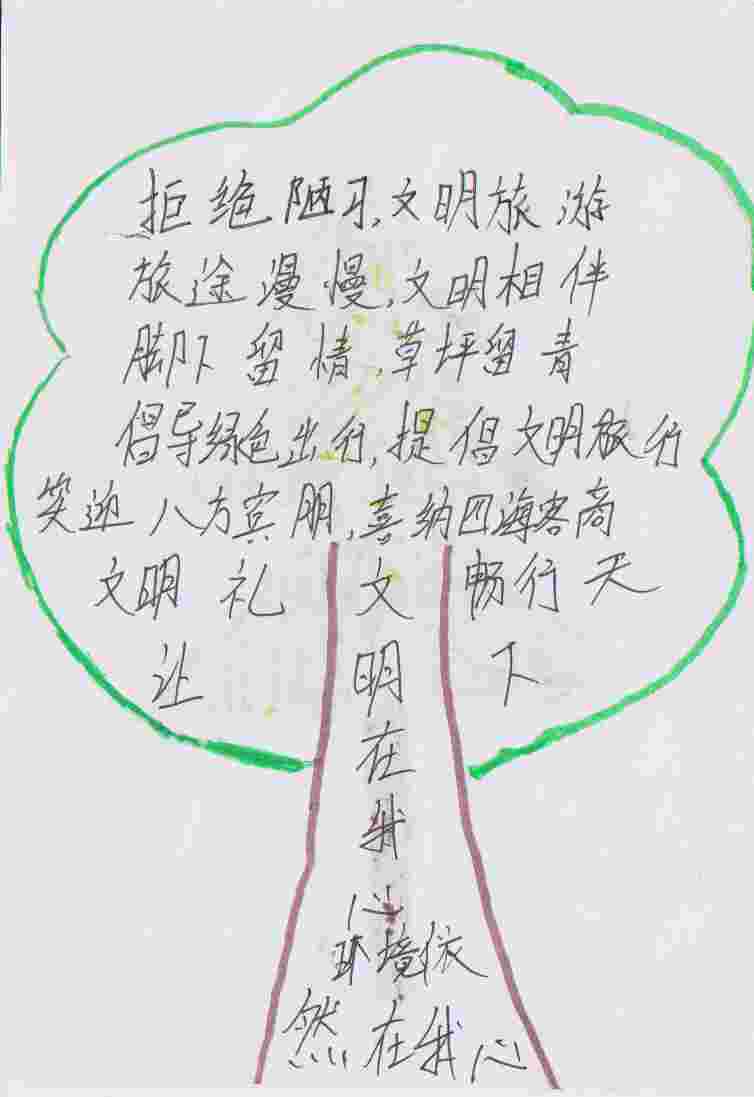 拒绝陋习,文明旅游
旅途漫慢,文明相伴
脚下留情,草坪留青
倡导绿色出行,提倡文明旅行
笑迎八方宾朋,喜纳四海客商
文明礼让
文明在我心
畅行天下
环境依
然在我心